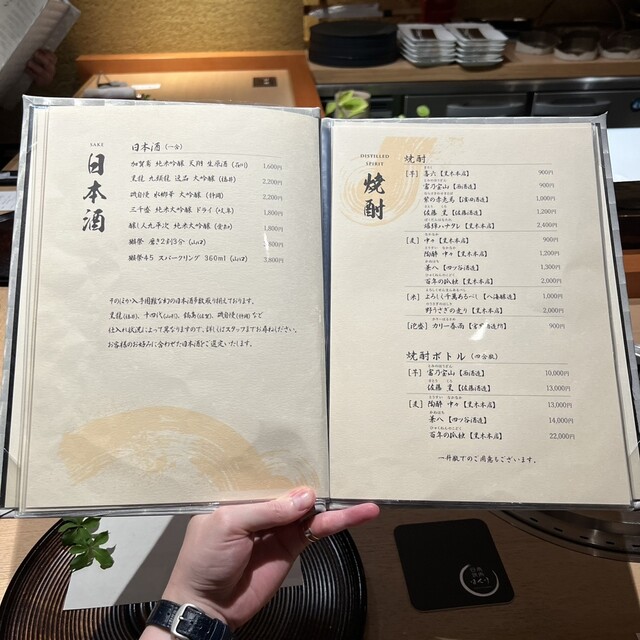 SAKE
日本酒
日本酒（一合）
加賀鳶 純米大吟醸 天翔 生原酒（石川） 1,600円
黒龍 九頭龍 逸品 大吟醸（福井） 2,200円
磯自慢 水響華 大吟醸（静岡） 2,200円
三千盛 純米大吟醸 ドライ（岐阜） 1,800円
醸し人九平次 純米大吟醸（愛知） 1,800円
獺祭 磨き2割3分（山口） 3,800円
獺祭45 スパークリング 360ml（山口） 3,800円
そのほか入手困難な幻の日本酒多数取り揃えております。
黒龍（福井）、十四代（山形）、鍋島（佐賀）、磯自慢（静岡）など
仕入れ状況によって異なりますので、詳しくはスタッフまでお尋ねください。
お客様のお好みに合わせた日本酒をご選定いたします。
DISTILLED
SPIRIT
焼酎
焼酎
［芋］ 喜六【黒木本店】 900円
富乃宝山【西酒造】 900円
紫の赤兎馬【濱田酒造】 1,000円
佐藤 黒【佐藤酒造】 1,200円
爆弾ハナタレ【黒木本店】 2,400円
［麦］ 中々【黒木本店】 900円
陶酔 中々【黒木本店】 1,200円
兼八【四ツ谷酒造】 1,300円
百年の孤独【黒木本店】 2,000円
［米］ よろしく千萬あるべし【八海醸造】 1,000円
野うさぎの走り【黒木本店】 2,000円
［泡盛］ カリー春雨【宮里酒造所】 900円
焼酎ボトル（四合瓶）
［芋］ 富乃宝山【西酒造】 10,000円
佐藤 黒【佐藤酒造】 13,000円
［麦］ 陶酔 中々【黒木本店】 13,000円
兼八【四ツ谷酒造】 14,000円
百年の孤独【黒木本店】 22,000円
一升瓶でのご用意もございます。